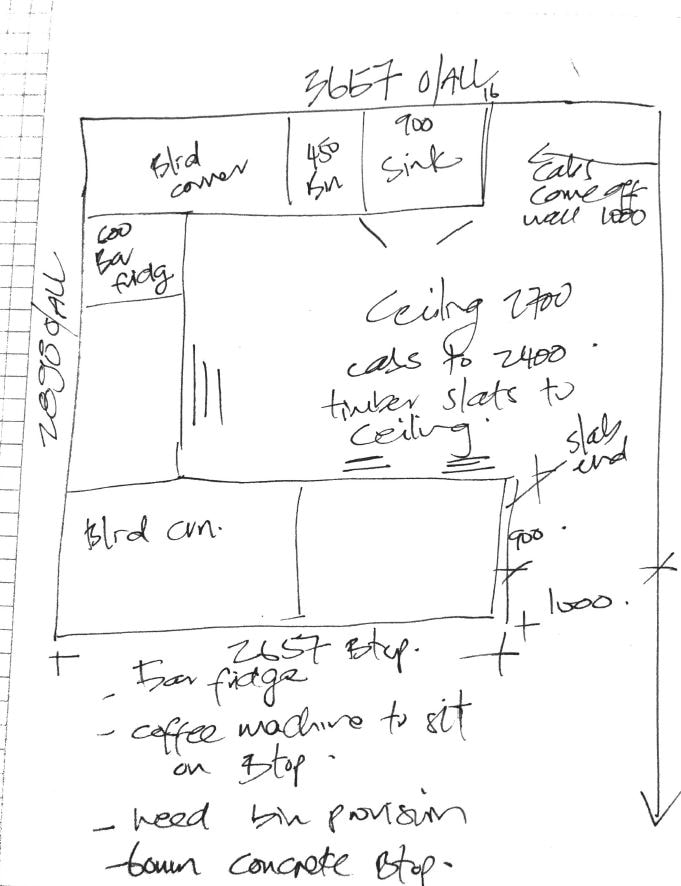 3657 O/ALL
16
Blrd
corner
450
Bin
900
Sink
Cabs
come off
wall 1000
600
Bar
fridg
2898 O/ALL
Ceiling 2700
cabs to 2400.
timber slats to
ceiling.
slab
end
Blrd crn.
900.
1000.
2657 Btop.
- Bar fridge
- coffee machine to sit
on Btop.
- need bin provision
- 60mm concrete Btop.